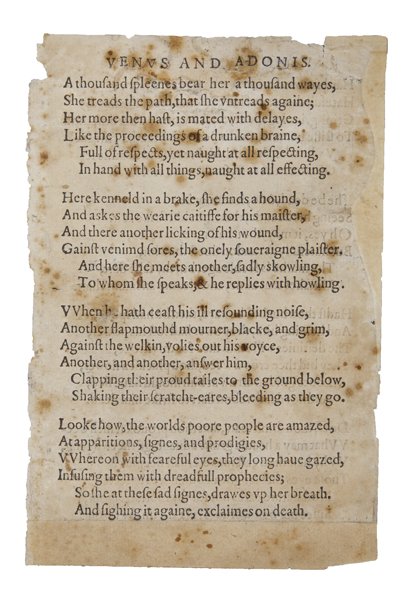 VENVS AND ADONIS.
A thousand spleenes bear her a thousand wayes,
She treads the path, that she vntreads againe;
Her more then hast, is mated with delayes,
Like the proceedings of a drunken braine,
Full of respects, yet naught at all respecting,
In hand with all things, naught at all effecting.
Here kenneld in a brake, she finds a hound,
And askes the wearie caitiffe for his maister,
And there another licking of his wound,
Gainst venimd sores, the onely soueraigne plaister.
And here she meets another, sadly skowling,
To whom she speaks, & he replies with howling.
VVhen he hath ceast his ill resounding noise,
Another flapmouthd mourner, blacke, and grim,
Against the welkin, volies out his voyce,
Another, and another, answer him,
Clapping their proud tailes to the ground below,
Shaking their scratcht-eares, bleeding as they go.
Looke how, the worlds poore people are amazed,
At apparitions, signes, and prodigies,
VVhereon with fearefull eyes, they long haue gazed,
Infusing them with dreadfull prophecies;
So she at these sad signes, drawes vp her breath.
And sighing it againe, exclaimes on death.